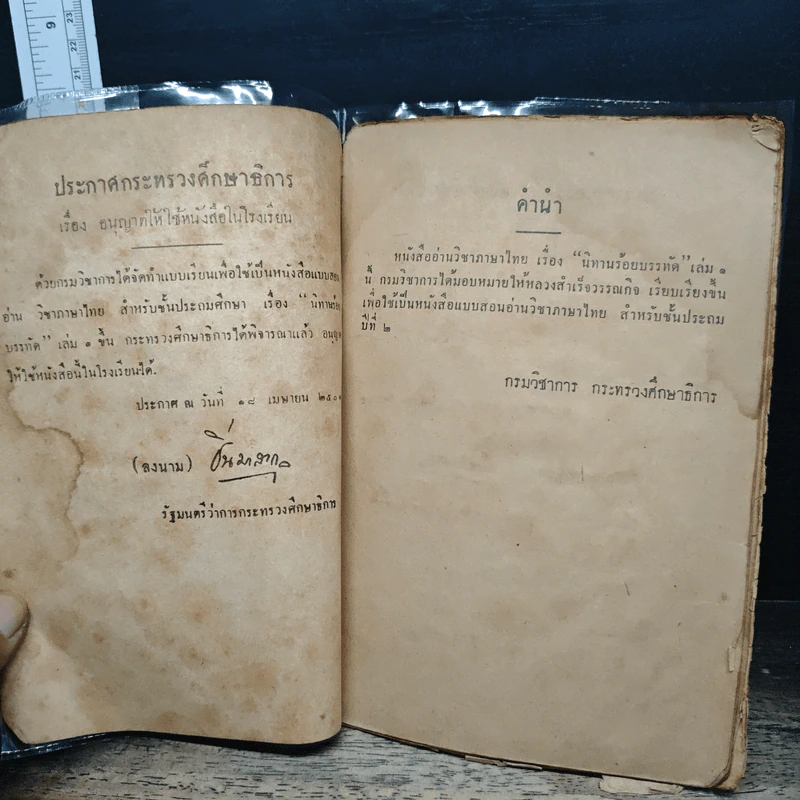 ประกาศกระทรวงศึกษาธิการ
เรื่อง อนุญาตให้ใช้หนังสือในโรงเรียน
ด้วยกรมวิชาการได้จัดทำแบบเรียนเพื่อใช้เป็นหนังสือแบบสอน
อ่าน วิชาภาษาไทย สำหรับชั้นประถมศึกษา เรื่อง “นิทานร้อย
บรรทัด” เล่ม ๑ ขึ้น กระทรวงศึกษาธิการได้พิจารณาแล้ว
ให้ใช้หนังสือนี้ในโรงเรียนได้.
ประกาศ ณ วันที่ ๑๘ เมษายน
(ลงนาม)
รัฐมนตรีว่าการกระทรวงศึกษาธิการ
คำนำ
หนังสืออ่านวิชาภาษาไทย เรื่อง “นิทานร้อยบรรทัด” เล่ม ๑
นี้ กรมวิชาการได้มอบหมายให้หลวงสำเร็จวรรณกิจ เรียบเรียงขึ้น
เพื่อใช้เป็นหนังสือแบบสอนอ่านวิชาภาษาไทย สำหรับชั้นประถม
ปีที่ ๒
กรมวิชาการ กระทรวงศึกษาธิการ
9
23
22
21